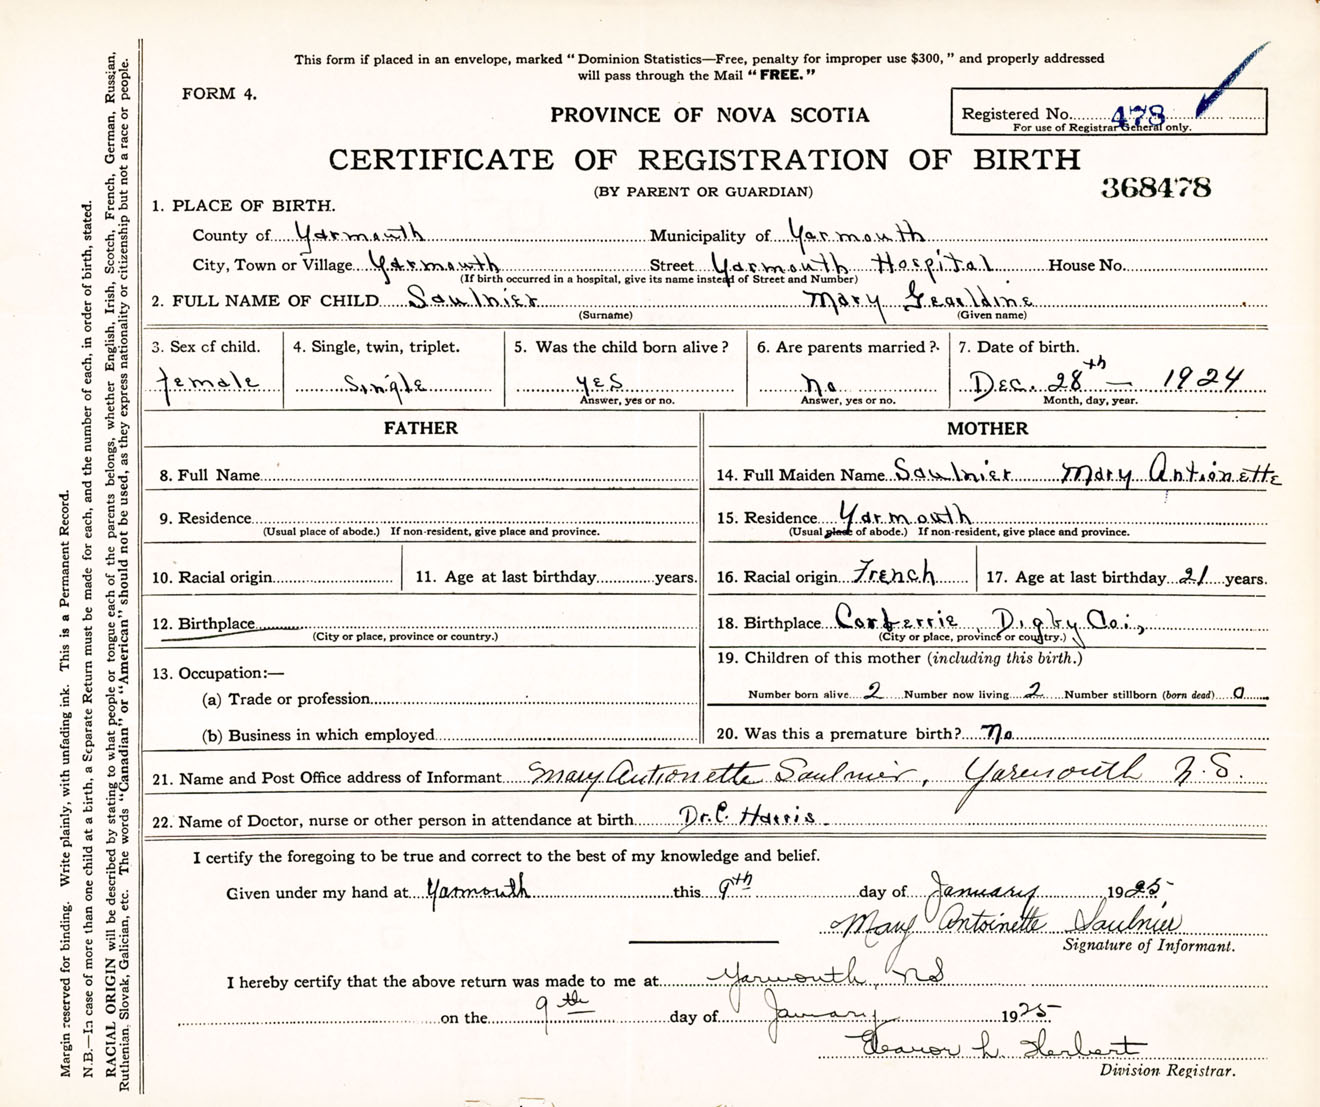 This form if placed in an envelope, marked "Dominion Statistics—Free, penalty for improper use $300," and properly addressed
will pass through the Mail "FREE."
FORM 4.
PROVINCE OF NOVA SCOTIA
Registered No. 478
For use of Registrar General only.
CERTIFICATE OF REGISTRATION OF BIRTH
(BY PARENT OR GUARDIAN)
368478
1. PLACE OF BIRTH.
County of Yarmouth Municipality of Yarmouth
City, Town or Village Yarmouth Street Yarmouth Hospital House No.
(If birth occurred in a hospital, give its name instead of Street and Number)
2. FULL NAME OF CHILD Saulnier Mary Gearldine
(Surname) (Given name)
3. Sex of child. 4. Single, twin, triplet. 5. Was the child born alive? 6. Are parents married? 7. Date of birth.
female Single yes no Dec. 28th — 1924
Answer, yes or no. Answer, yes or no. Month, day, year.
FATHER
8. Full Name
9. Residence
(Usual place of abode.) If non-resident, give place and province.
10. Racial origin 11. Age at last birthday years.
12. Birthplace
(City or place, province or country.)
13. Occupation:—
(a) Trade or profession
(b) Business in which employed
MOTHER
14. Full Maiden Name Saulnier Mary Antionette
15. Residence Yarmouth
(Usual place of abode.) If non-resident, give place and province.
16. Racial origin French 17. Age at last birthday 21 years.
18. Birthplace Corberrie Digby Co.,
(City or place, province or country.)
19. Children of this mother (including this birth.)
Number born alive 2 Number now living 2 Number stillborn (born dead) 0
20. Was this a premature birth? No
21. Name and Post Office address of Informant Mary Antionette Saulnier, Yarmouth N.S.
22. Name of Doctor, nurse or other person in attendance at birth Dr. C. Harris.
I certify the foregoing to be true and correct to the best of my knowledge and belief.
Given under my hand at Yarmouth this 9th day of January 1925
Mary Antoinette Saulnier
Signature of Informant.
I hereby certify that the above return was made to me at Yarmouth, NS
on the 9th day of January 1925
Eleanor L. Herbert
Division Registrar.
Margin reserved for binding. Write plainly, with unfading ink. This is a Permanent Record.
N.B.—In case of more than one child at a birth, a Separate Return must be made for each, and the number of each, in order of birth, stated.
RACIAL ORIGIN will be described by stating to what people or tongue each of the parents belongs, whether English, Irish, Scotch, French, German, Russian,
Ruthenian, Slovak, Galician, etc. The words "Canadian" or "American" should not be used, as they express nationality or citizenship but not a race or people.